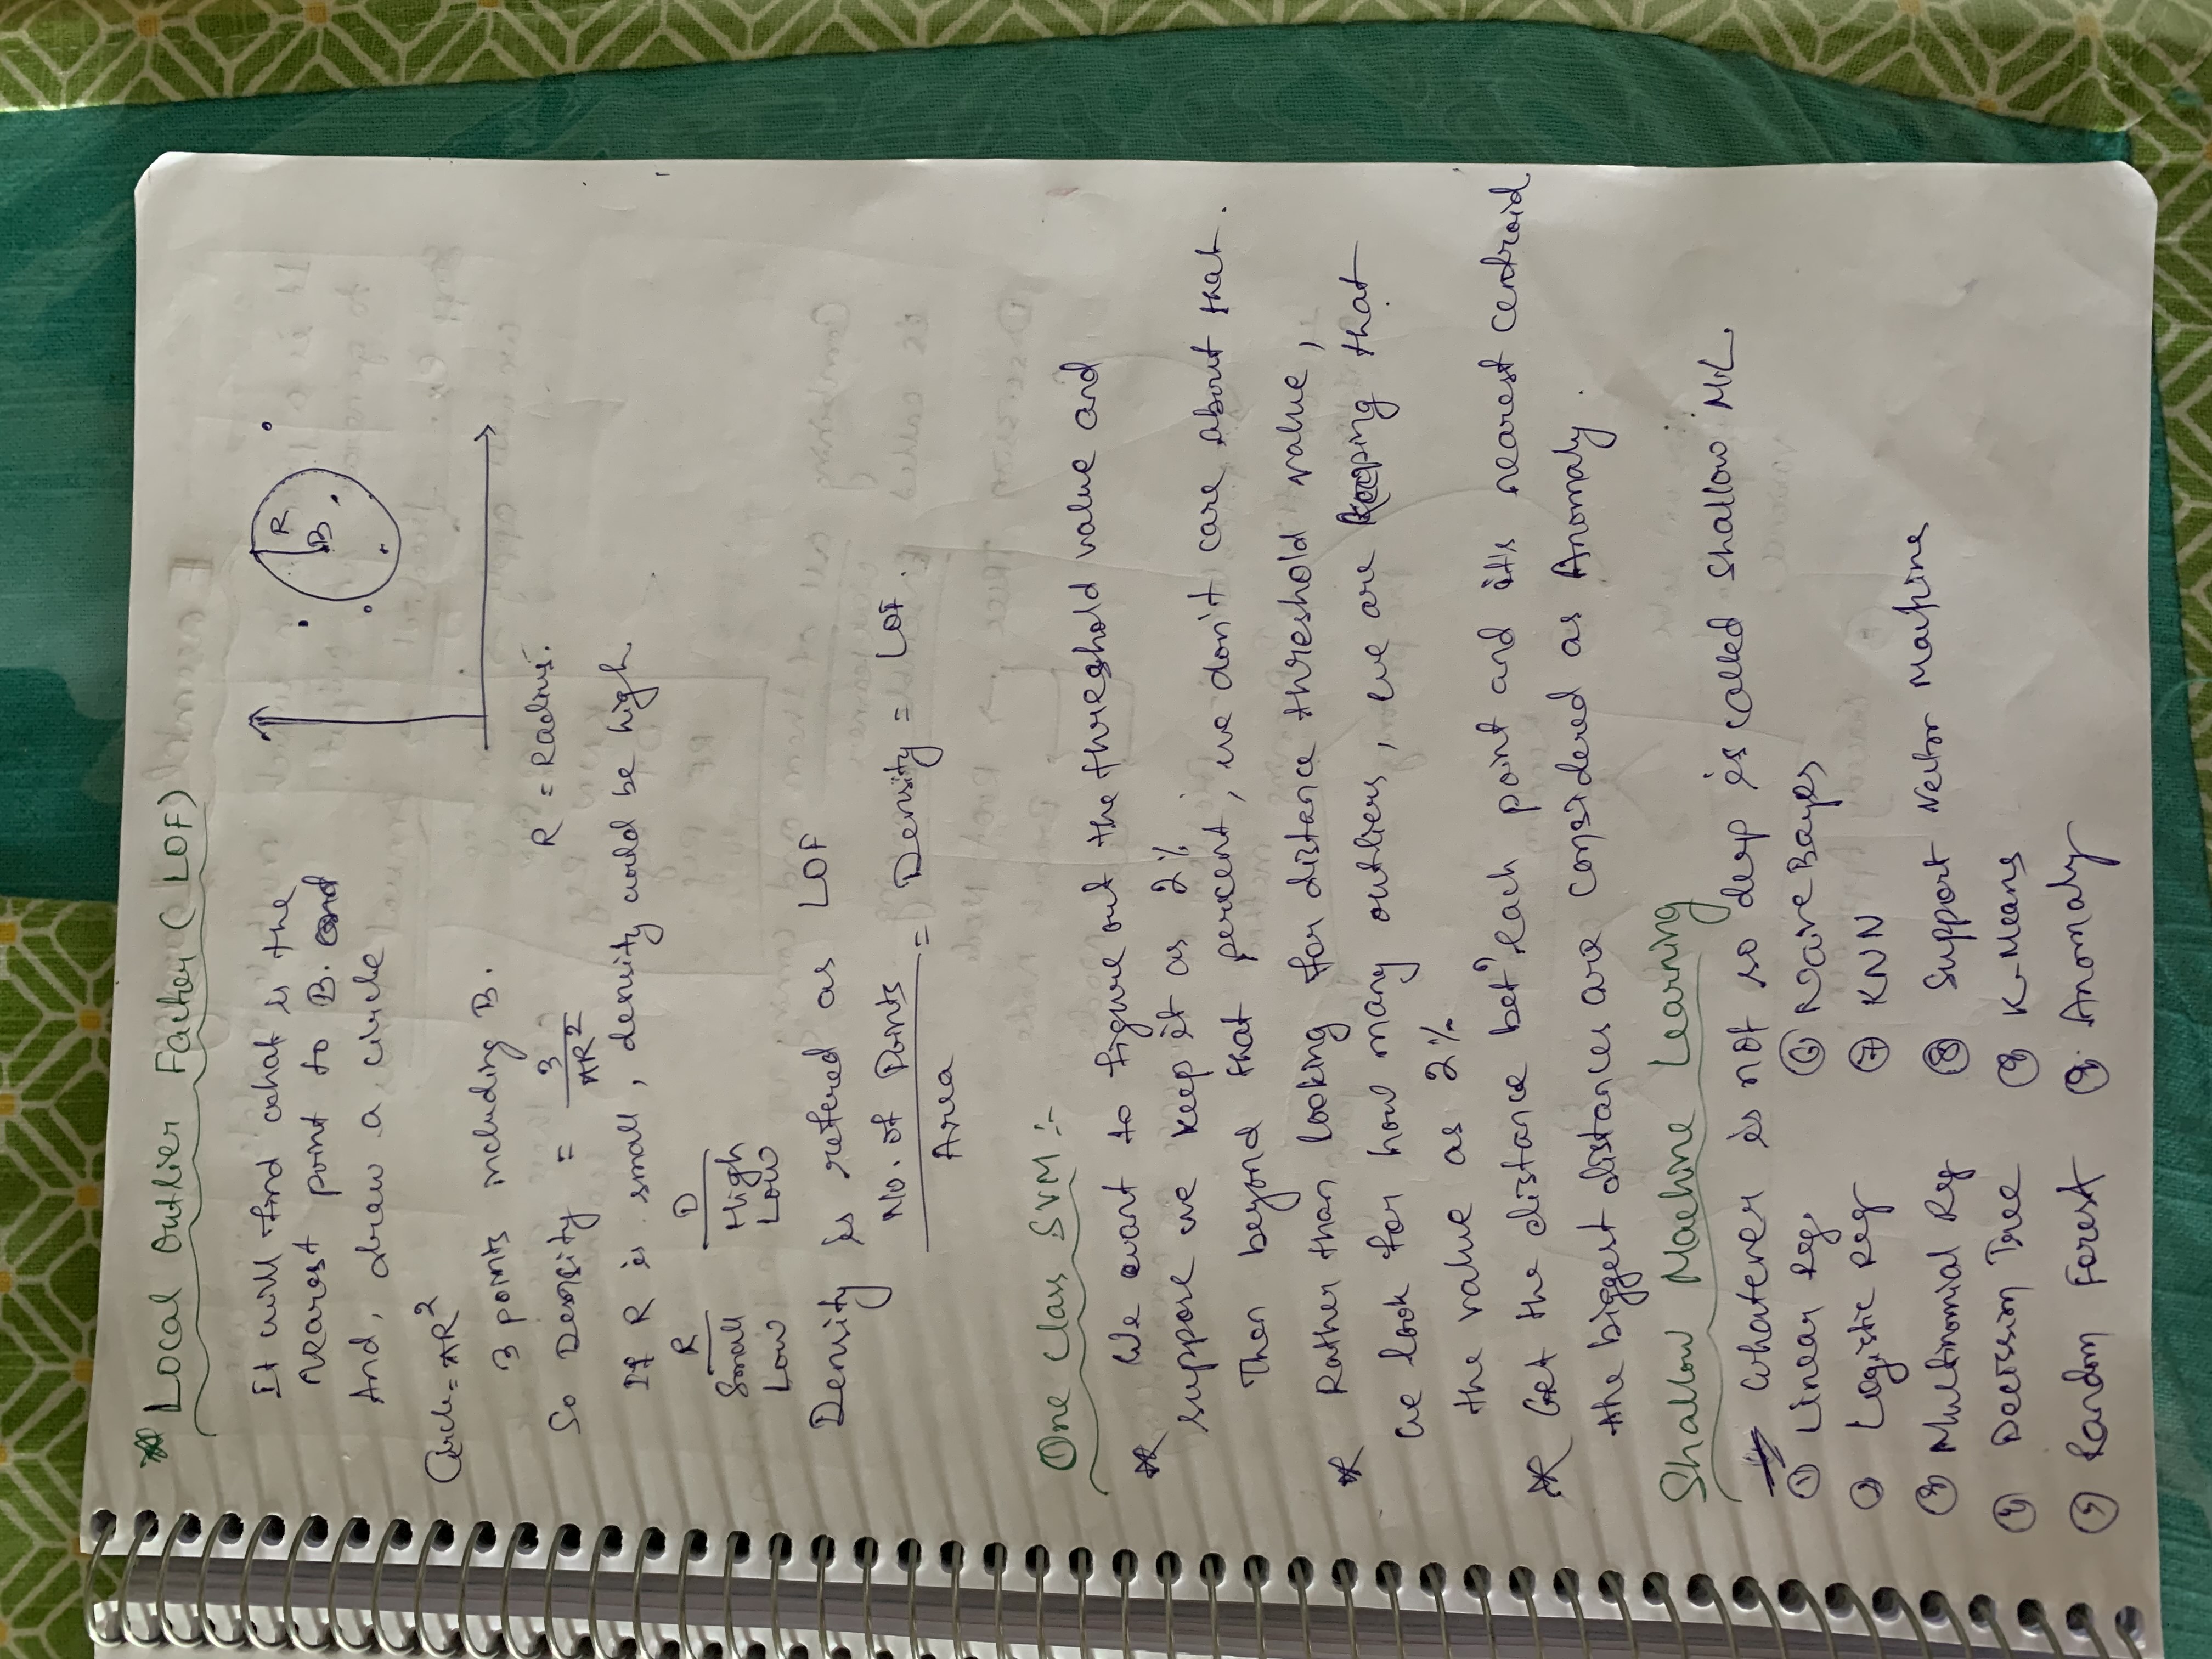 * Local Outlier Factor (LOF)
It will find what is the
nearest point to B. and
And, draw a circle
R
B
Circle = πR²
3 points including B.
R = Radius.
So Density = 3 / πR²
If R is small, density would be high
R D
Small High
Low Low
Density is refered as LOF
No. of Points / Area = Density = LOF.
One Class SVM :-
* We want to figure out the threshold value and
suppose we keep it as 2%.
Then beyond that percent, we don't care about that.
* Rather than looking for distance threshold value,
we look for how many outliers, we are keeping that
the value as 2%
* Get the distance betⁿ each point and it's nearest centroid
the biggest distances are considered as Anomaly.
Shallow Machine Learning
Whatever is not so deep is called Shallow ML.
① Linear Reg. ⑥ Naive Bayes
② Logistic Reg ⑦ KNN
③ Multinomial Reg ⑧ Support Vector Machine
④ Decission Tree ⑨ K-Means
⑤ Random Forest ⑨ Anomaly